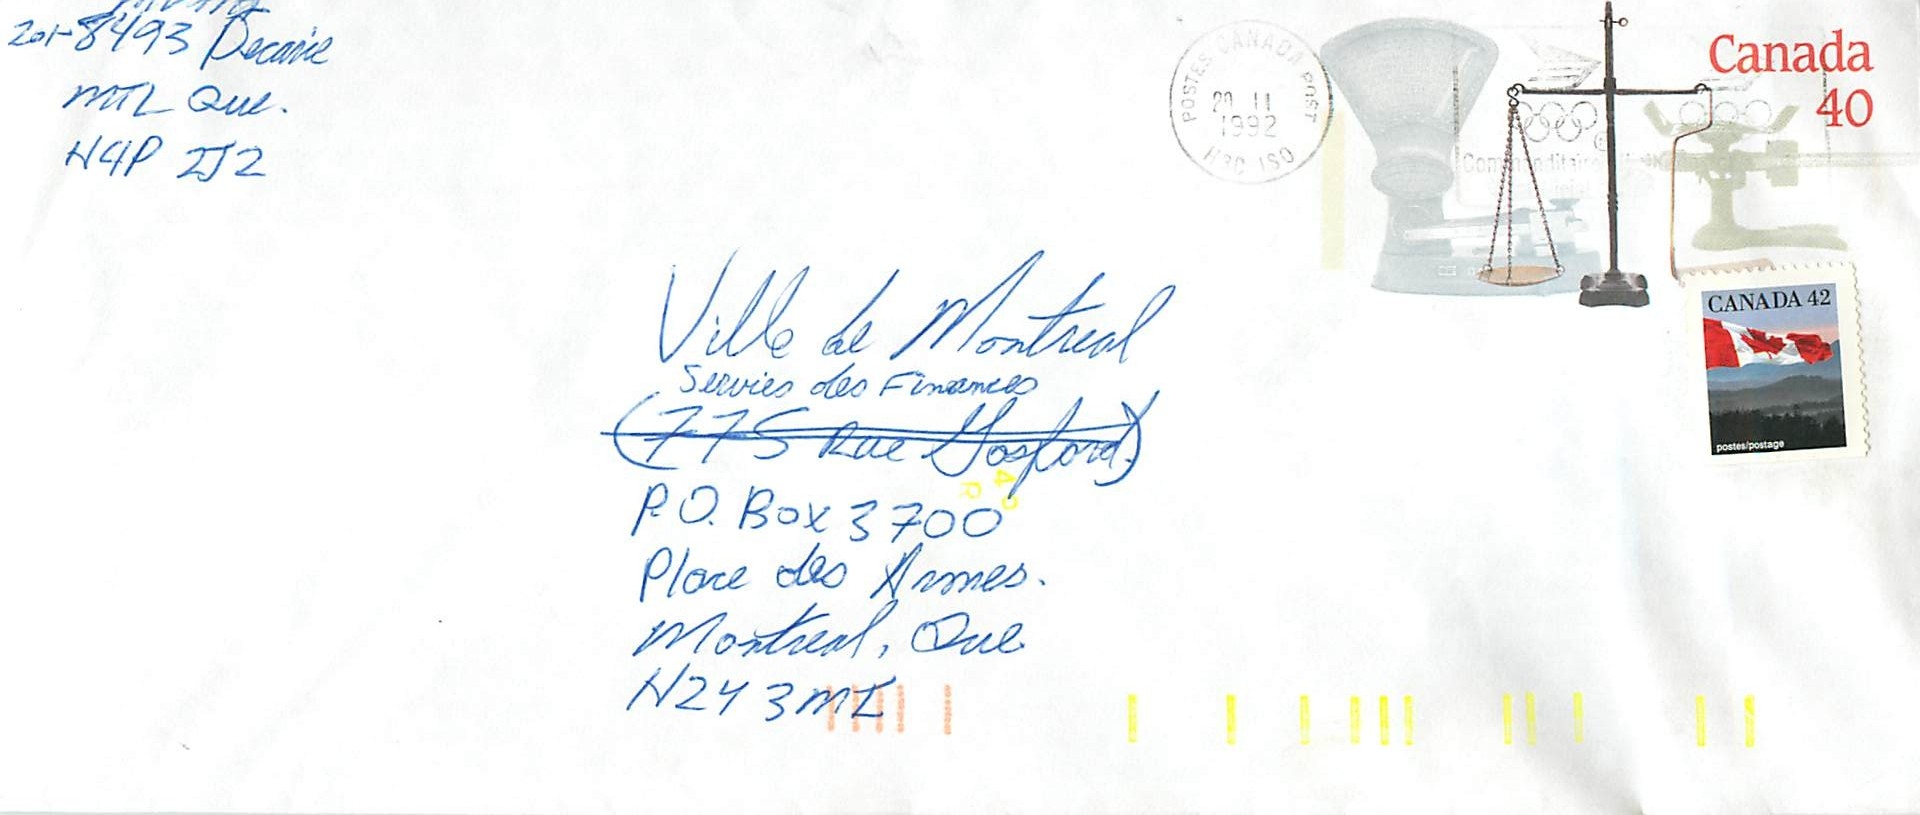 201-8493 Decarie
MTL Que.
H4P 2J2
POSTES CANADA POST
20 11
1992
H3C 1S0
Commanditaire
Canada
40
CANADA 42
postes/postage
Ville de Montreal
Servies des Finances
(775 Rue Gosford)
P.O. Box 3700
Place des Armes.
Montreal, Que
H2Y 3M1